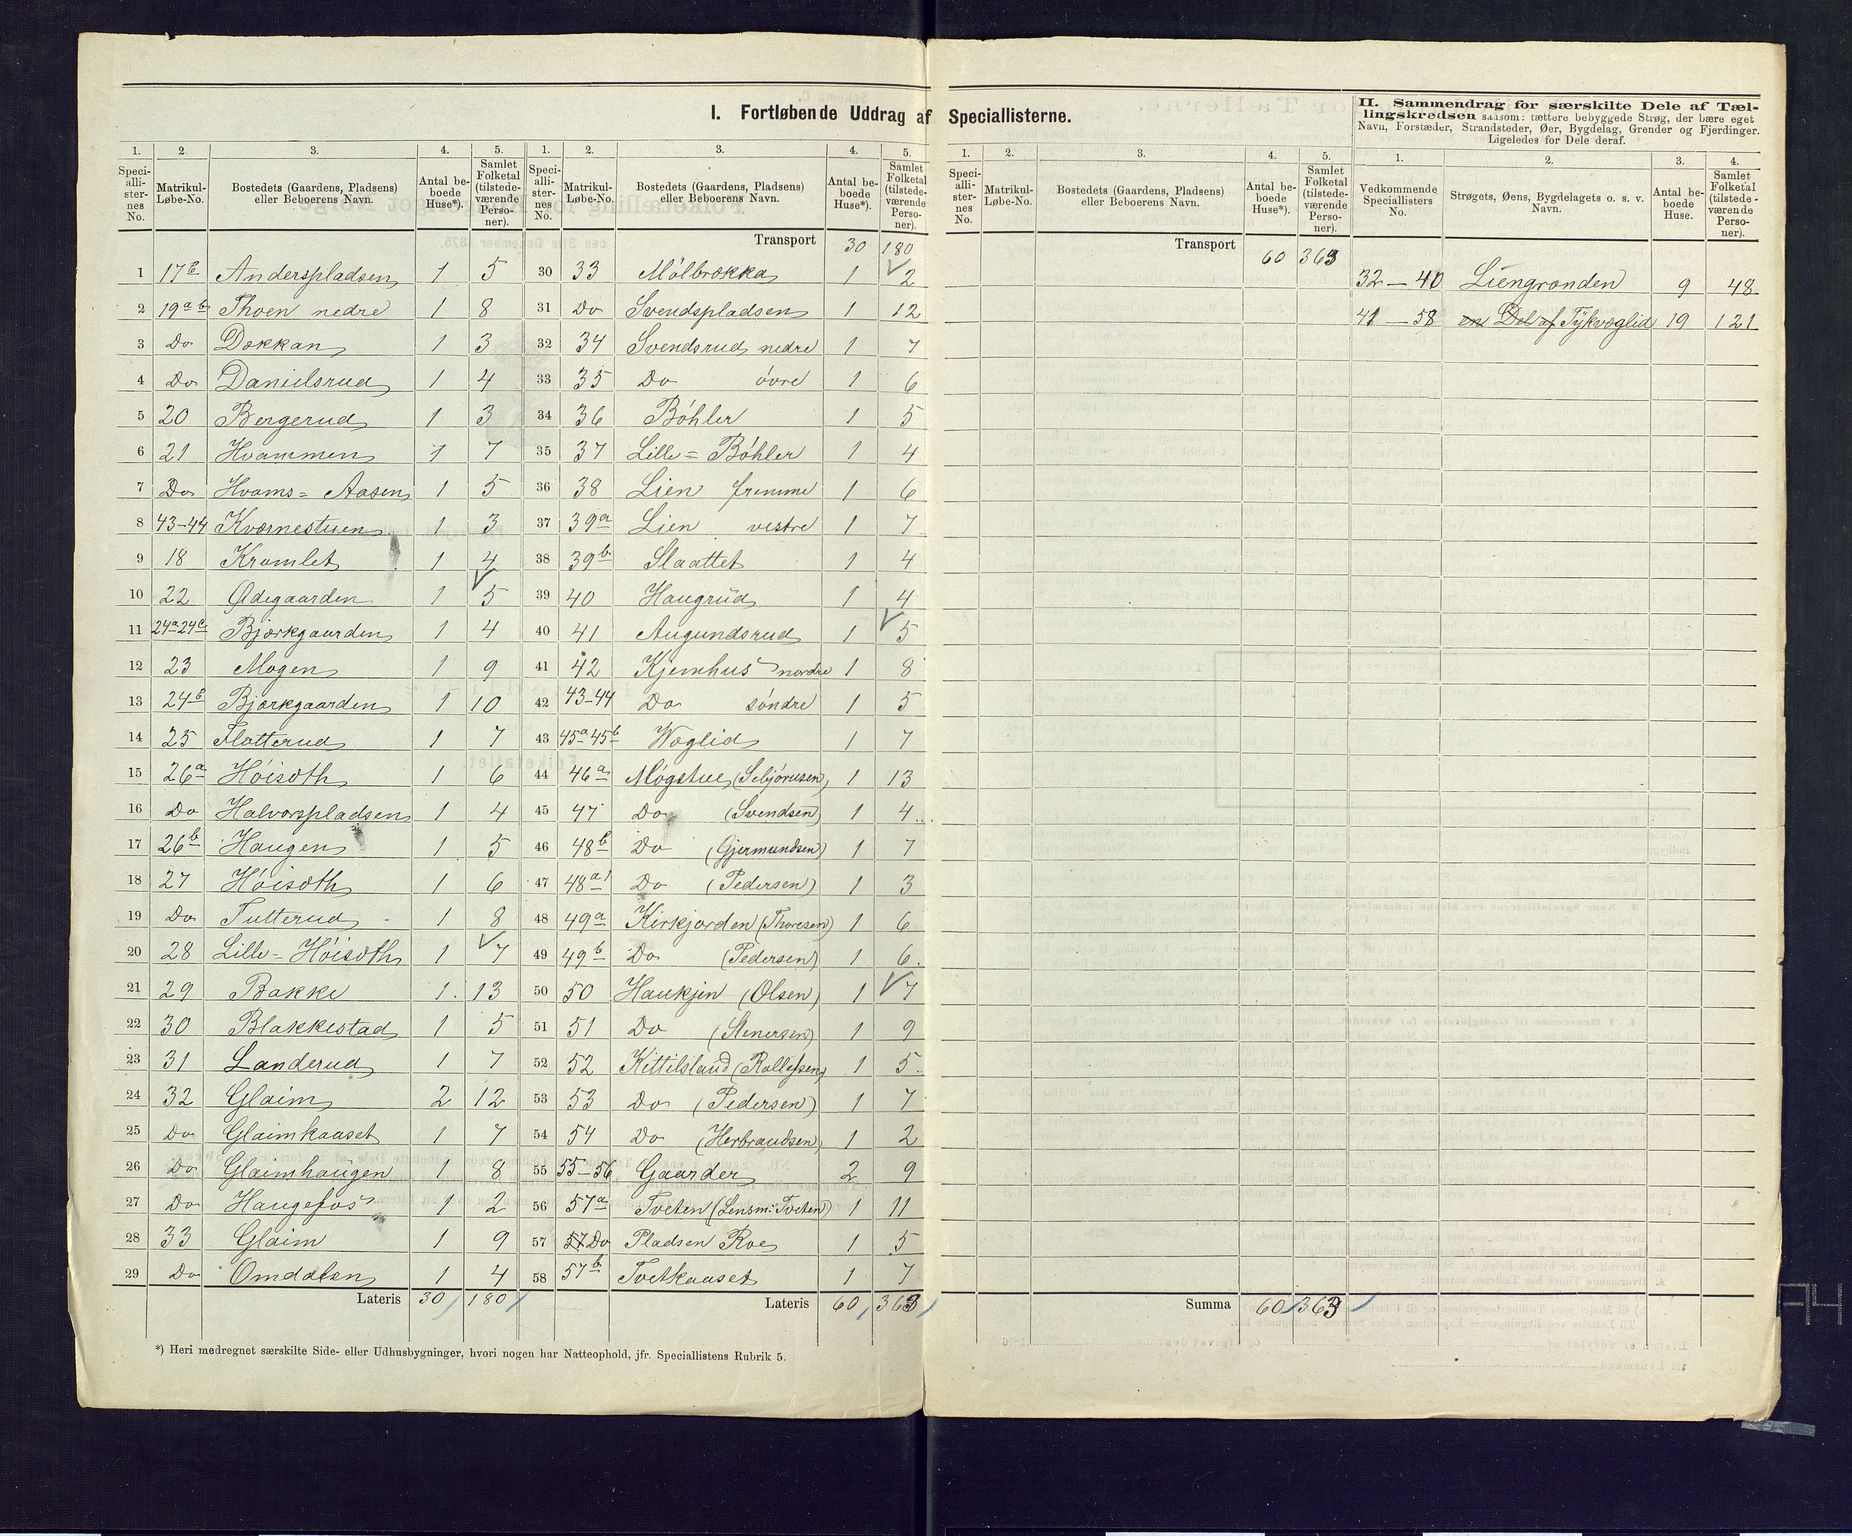 I. Fortløbende Uddrag af Speciallisterne.
1. 2. 3. 4. 5.
Speciallisternes No. Matrikul-Løbe-No. Bostedets (Gaardens, Pladsens) eller Beboerens Navn. Antal beboede Huse*). Samlet Folketal (tilstedeværende Personer).
1 17b Anderspladsen 1 5
2 19a b Thoen nedre 1 8
3 Do Dokkan 1 3
4 Do Danielsrud 1 4
5 20 Bergerud 1 3
6 21 Hvammen 1 7
7 Do Hvams=Aasen 1 5
8 43-44 Kværnestuen 1 3
9 18 Kromlet 1 4
10 22 Ødegaarden 1 5
11 24a 24c Bjørkgaarden 1 4
12 23 Mogen 1 9
13 24b Bjørkgaarden 1 10
14 25 Flatterud 1 7
15 26a Höisæth 1 6
16 Do Halvorspladsen 1 4
17 26b Haugen 1 5
18 27 Höisæth 1 6
19 Do Tutterud 1 8
20 28 Lille=Höisæth 1 7
21 29 Bakke 1 13
22 30 Blakkestad 1 5
23 31 Landerud 1 7
24 32 Glaim 2 12
25 Do Glaimkaaset 1 7
26 Do Glaimhaugen 1 8
27 Do Haugefos 1 2
28 33 Glaim 1 9
29 Do Omdalen 1 4
Lateris 30 180
*) Heri medregnet særskilte Side- eller Udhusbygninger, hvori nogen har Natteophold, jfr. Speciallistens Rubrik 5.
1. 2. 3. 4. 5.
Speciallisternes No. Matrikul-Løbe-No. Bostedets (Gaardens, Pladsens) eller Beboerens Navn. Antal beboede Huse*). Samlet Folketal (tilstedeværende Personer).
Transport 30 180
30 33 Mölbrokka 1 2
31 Do Svendspladsen 1 12
32 34 Svendsrud nedre 1 7
33 35 Do övre 1 6
34 36 Böhler 1 5
35 37 Lille=Böhler 1 4
36 38 Lien fremme 1 6
37 39a Lien vestre 1 7
38 39b Slaattet 1 4
39 40 Haugrud 1 4
40 41 Augundsrud 1 5
41 42 Kjemhus nordre 1 8
42 43-44 Do söndre 1 5
43 45a 45b Væglid 1 7
44 46a Møgstue (Sebjörnsen) 1 13
45 47 Do (Svendsen) 1 4
46 48b Do (Gjermundsen) 1 7
47 48a1 Do (Pedersen) 1 3
48 49a Kirkjorden (Thoresen) 1 6
49 49b Do (Pedersen) 1 6
50 50 Haukjen (Olsen) 1 7
51 51 Do (Stenersen) 1 9
52 52 Kittilsland (Rollefsen) 1 5
53 53 Do (Pedersen) 1 7
54 54 Do (Herbrandsen) 1 2
55 55-56 Gaarder 2 9
56 57a Tveten (Lensm: Tveten) 1 11
57 57 Do Pladsen Roe 1 5
58 57b Tvetkaaset 1 7
Lateris 60 363
1. 2. 3. 4. 5.
Speciallisternes No. Matrikul-Løbe-No. Bostedets (Gaardens, Pladsens) eller Beboerens Navn. Antal beboede Huse*). Samlet Folketal (tilstedeværende Personer).
Transport 60 363
Summa 60 363
II. Sammendrag for særskilte Dele af Tællingskredsen saasom: tættere bebyggede Strøg, der bære eget
Navn, Forstæder, Strandsteder, Øer, Bygdelag, Grender og Fjerdinger.
Ligeledes for Dele deraf.
1. 2. 3. 4.
Vedkommende Speciallisters No. Strøgets, Øens, Bygdelagets o. s. v. Navn. Antal beboede Huse. Samlet Folketal (tilstedeværende Personer).
32-40 Liengrænden 9 48
41-58 en Del af Tykvæglid 19 121